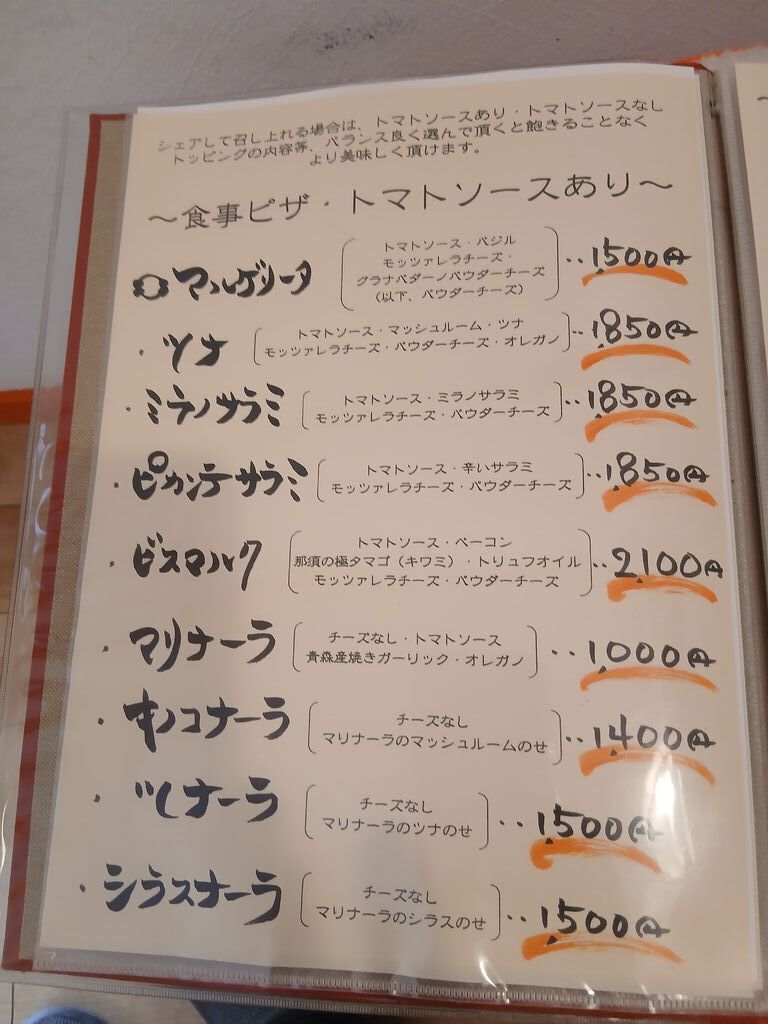 シェアして召し上れる場合は、トマトソースあり・トマトソースなし
トッピングの内容等、バランス良く選んで頂くと飽きることなく
より美味しく頂けます。
～食事ピザ・トマトソースあり～
マルゲリータ
トマトソース・バジル
モッツァレラチーズ・
グラナパダーノパウダーチーズ
(以下、パウダーチーズ)
‥1,500円
・ツナ
トマトソース・マッシュルーム・ツナ
モッツァレラチーズ・パウダーチーズ・オレガノ
‥1,850円
・ミラノサラミ
トマトソース・ミラノサラミ
モッツァレラチーズ・パウダーチーズ
‥1,850円
・ピカンテサラミ
トマトソース・辛いサラミ
モッツァレラチーズ・パウダーチーズ
‥1,850円
・ビスマルク
トマトソース・ベーコン
那須の極タマゴ(キワミ)・トリュフオイル
モッツァレラチーズ・パウダーチーズ
‥2,100円
・マリナーラ
チーズなし・トマトソース
青森産焼きガーリック・オレガノ
‥1,000円
・キノコナーラ
チーズなし
マリナーラのマッシュルームのせ
‥1,400円
・ツナナーラ
チーズなし
マリナーラのツナのせ
‥1,500円
・シラスナーラ
チーズなし
マリナーラのシラスのせ
‥1,500円